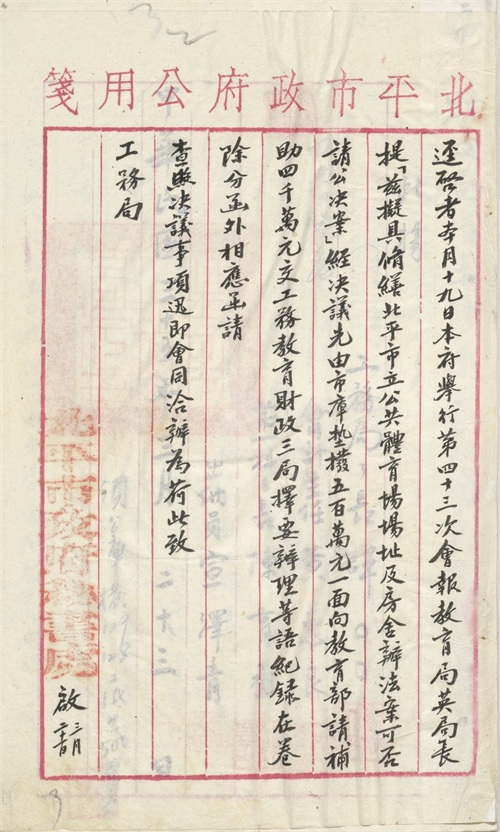 北平市政府公用箋
逕啓者本月十九日本府舉行第四十三次會報教育局英局長
提「兹擬具脩繕北平市立公共體育場場址及房舍辦法案可否
請公决案」經决議先由市庫墊撥五百萬元一面向教育部請補
助四千萬元交工務教育財政三局擇要辦理等語紀録在卷
除分函外相應函請
查照决議事項迅即會同洽辦為荷此致
工務局
北平市政府秘書處
啟